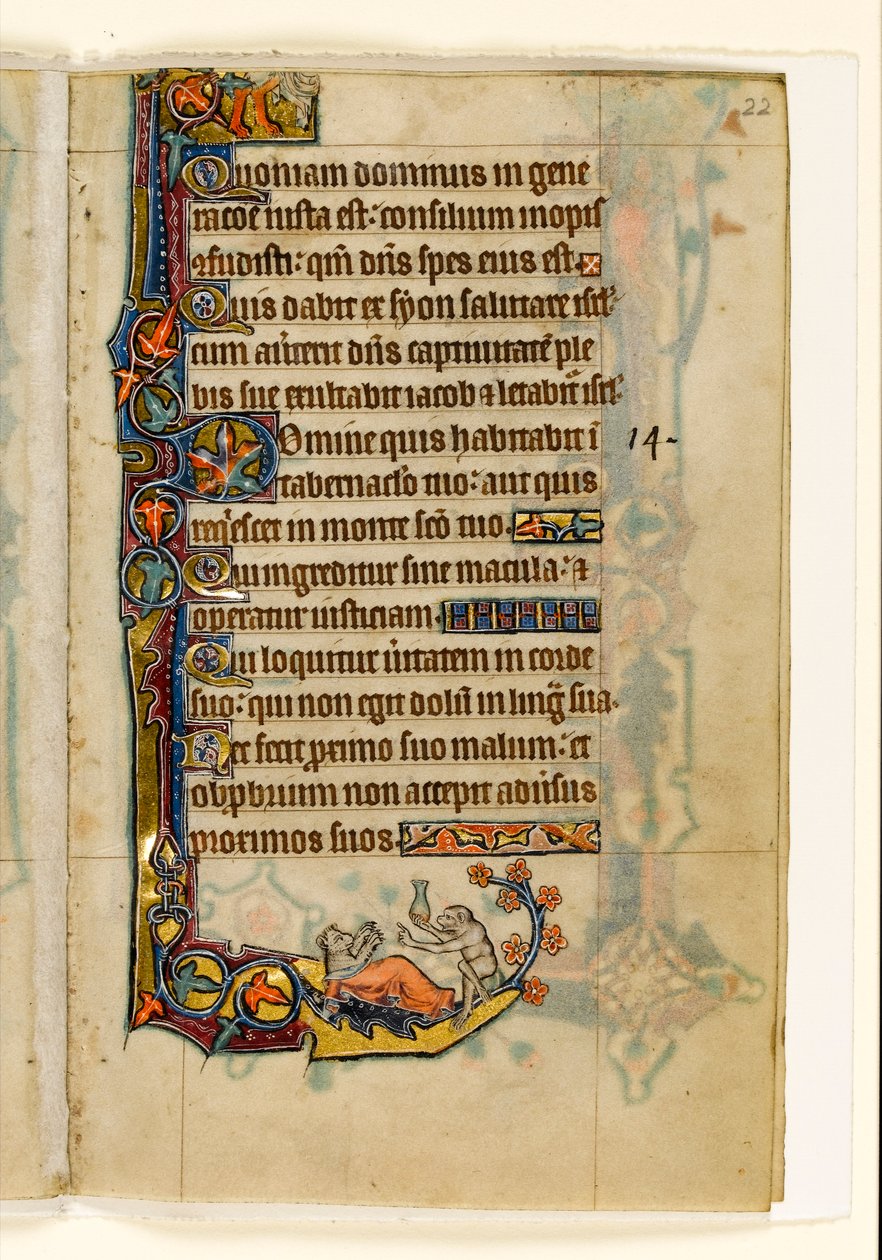 22
Quoniam dominus in gene
racoē iusta est: consilium inopis
ꝯfudisti: qm̄ dn̄s spes eius est.
Quis dabit ex syon salutare isrl:
cum aūterit dn̄s captiuitatē ple
bis sue exultabit iacob ⁊ letabit᷑ isrl.
Domine quis habitabit ī
tabernacl̄o tuo: aut quis
req̇escet in monte scō tuo.
Qui ingreditur sine macula: ⁊
operatur iusticiam.
Qui loquitur ūitatem in corde
suo: qui non egit dolū in ling̃ sua.
Nec fecit ꝓximo suo malum: et
obꝓbrium non accepit aduꝰsus
proximos suos.
14.